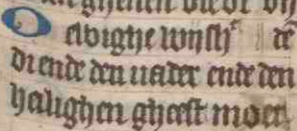 O
ewighe wijsh͛ dē
diende den uader ende den
heilighen gheest moet